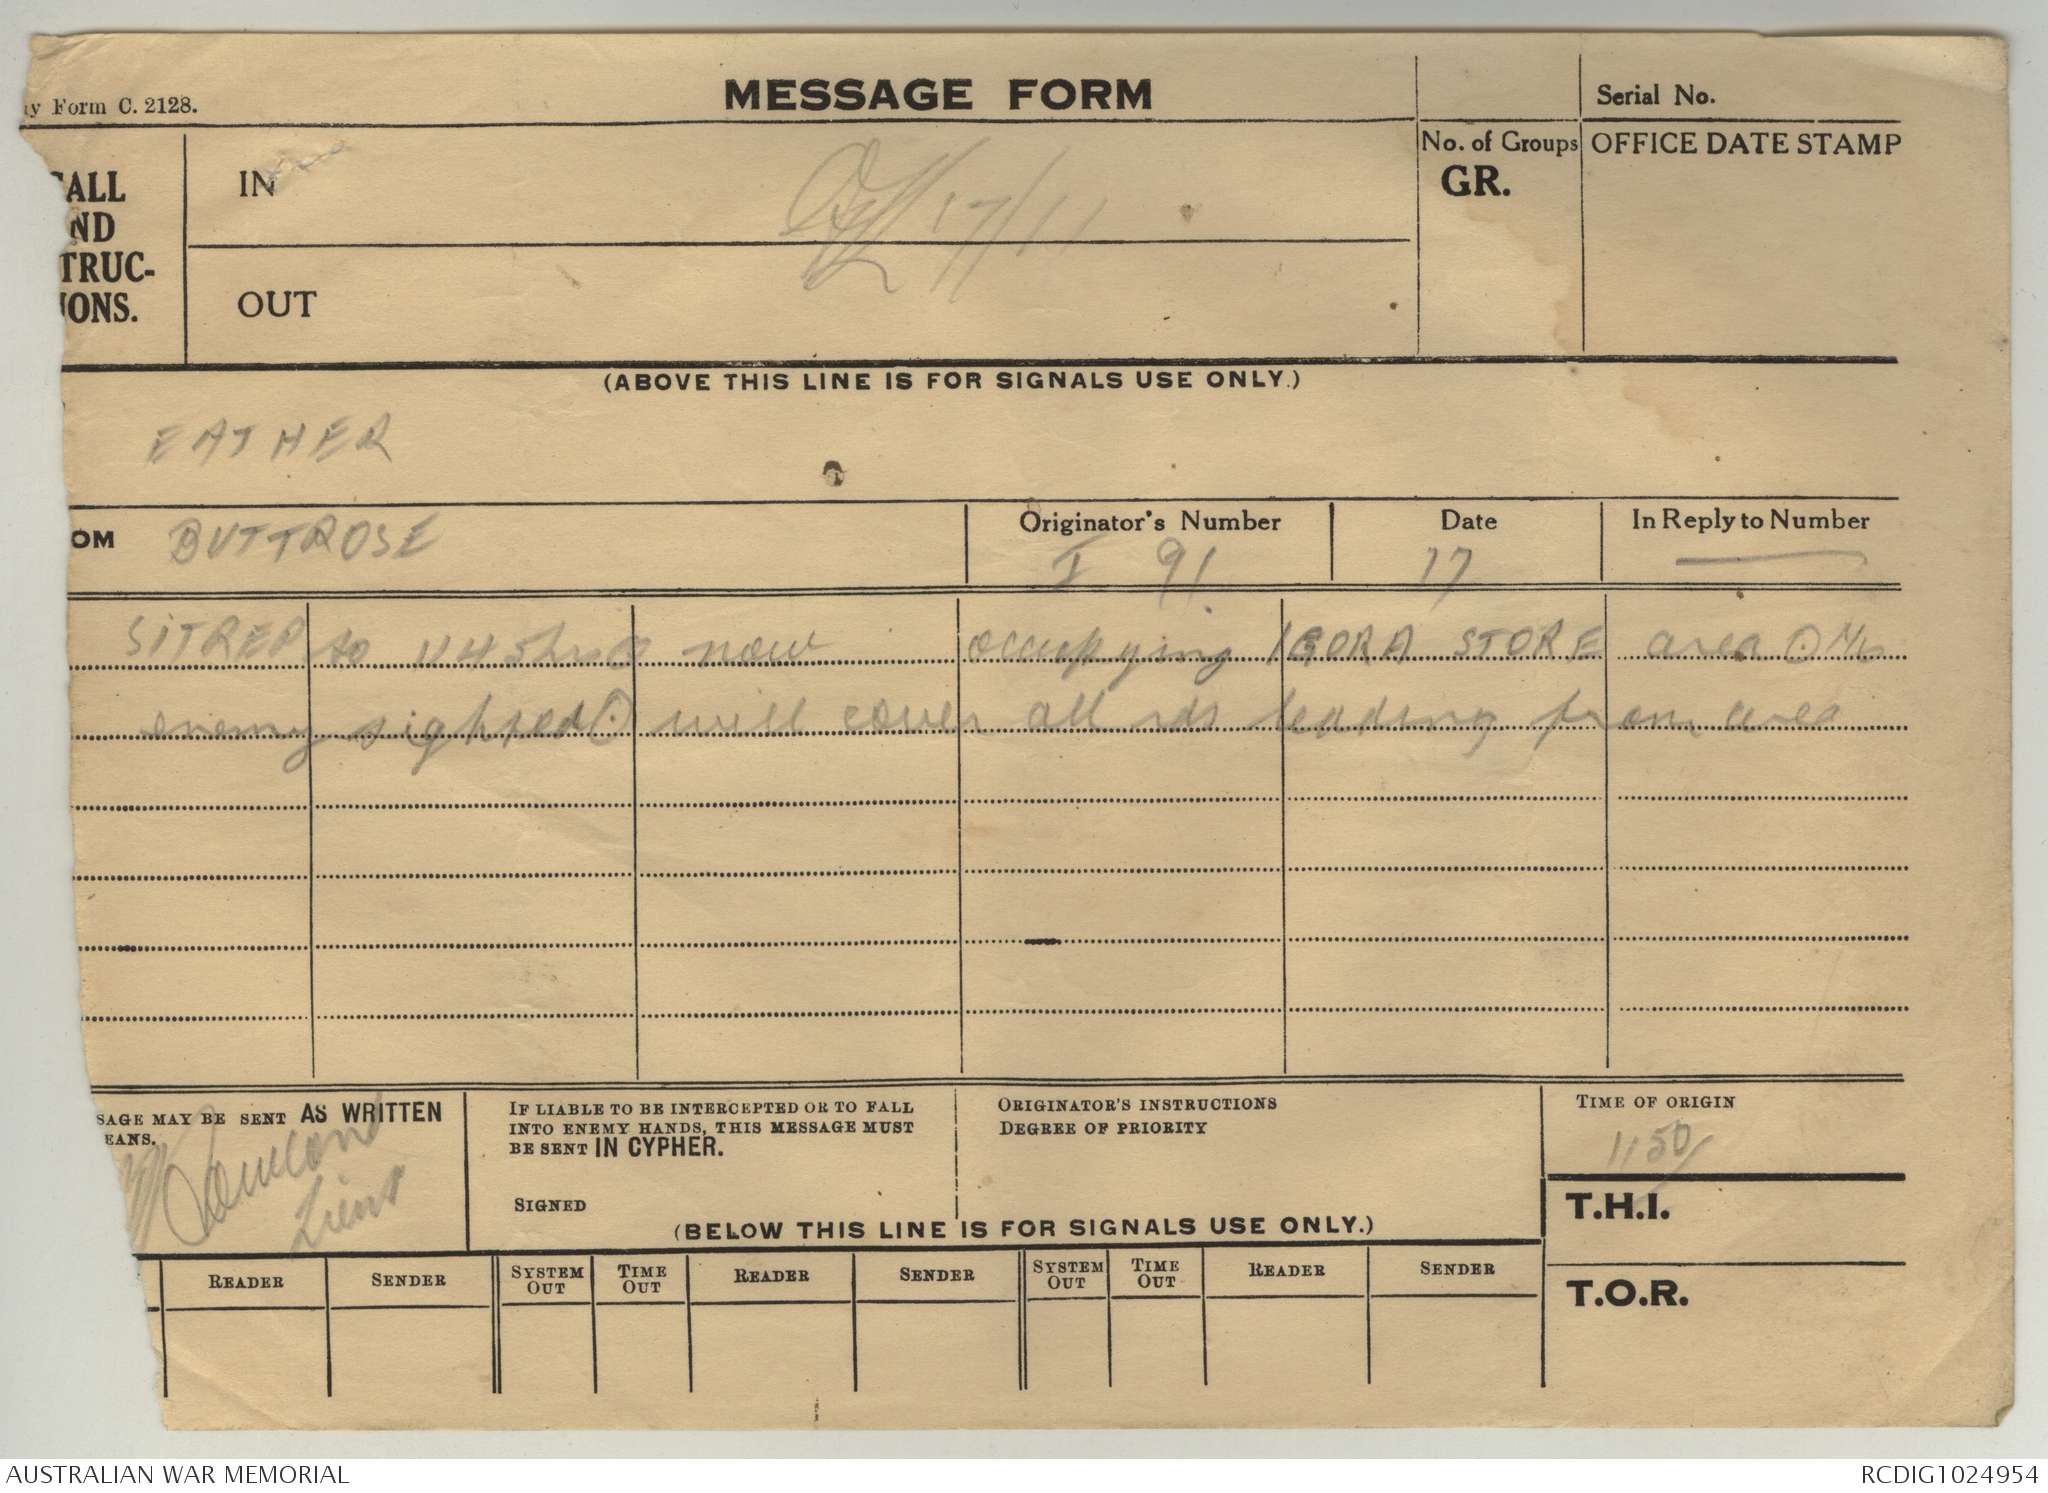 ny Form C. 2128.
MESSAGE FORM
Serial No.
CALL
ND
TRUC-
IONS.
IN
17/11
No. of Groups
GR.
OFFICE DATE STAMP
OUT
(ABOVE THIS LINE IS FOR SIGNALS USE ONLY.)
EATHER
OM BUTTROSE
Originator's Number
I 91
Date
17
In Reply to Number
SITREP to 1145 hrs now occupying STORE area
enemy sighted will cover all rds leading from area
SAGE MAY BE SENT AS WRITTEN
EANS.
Lieut
IF LIABLE TO BE INTERCEPTED OR TO FALL
INTO ENEMY HANDS, THIS MESSAGE MUST
BE SENT IN CYPHER.
SIGNED
ORIGINATOR'S INSTRUCTIONS
DEGREE OF PRIORITY
TIME OF ORIGIN
1150
T.H.I.
(BELOW THIS LINE IS FOR SIGNALS USE ONLY.)
READER SENDER SYSTEM OUT TIME OUT READER SENDER SYSTEM OUT TIME OUT READER SENDER
T.O.R.
AUSTRALIAN WAR MEMORIAL
RCDIG1024954